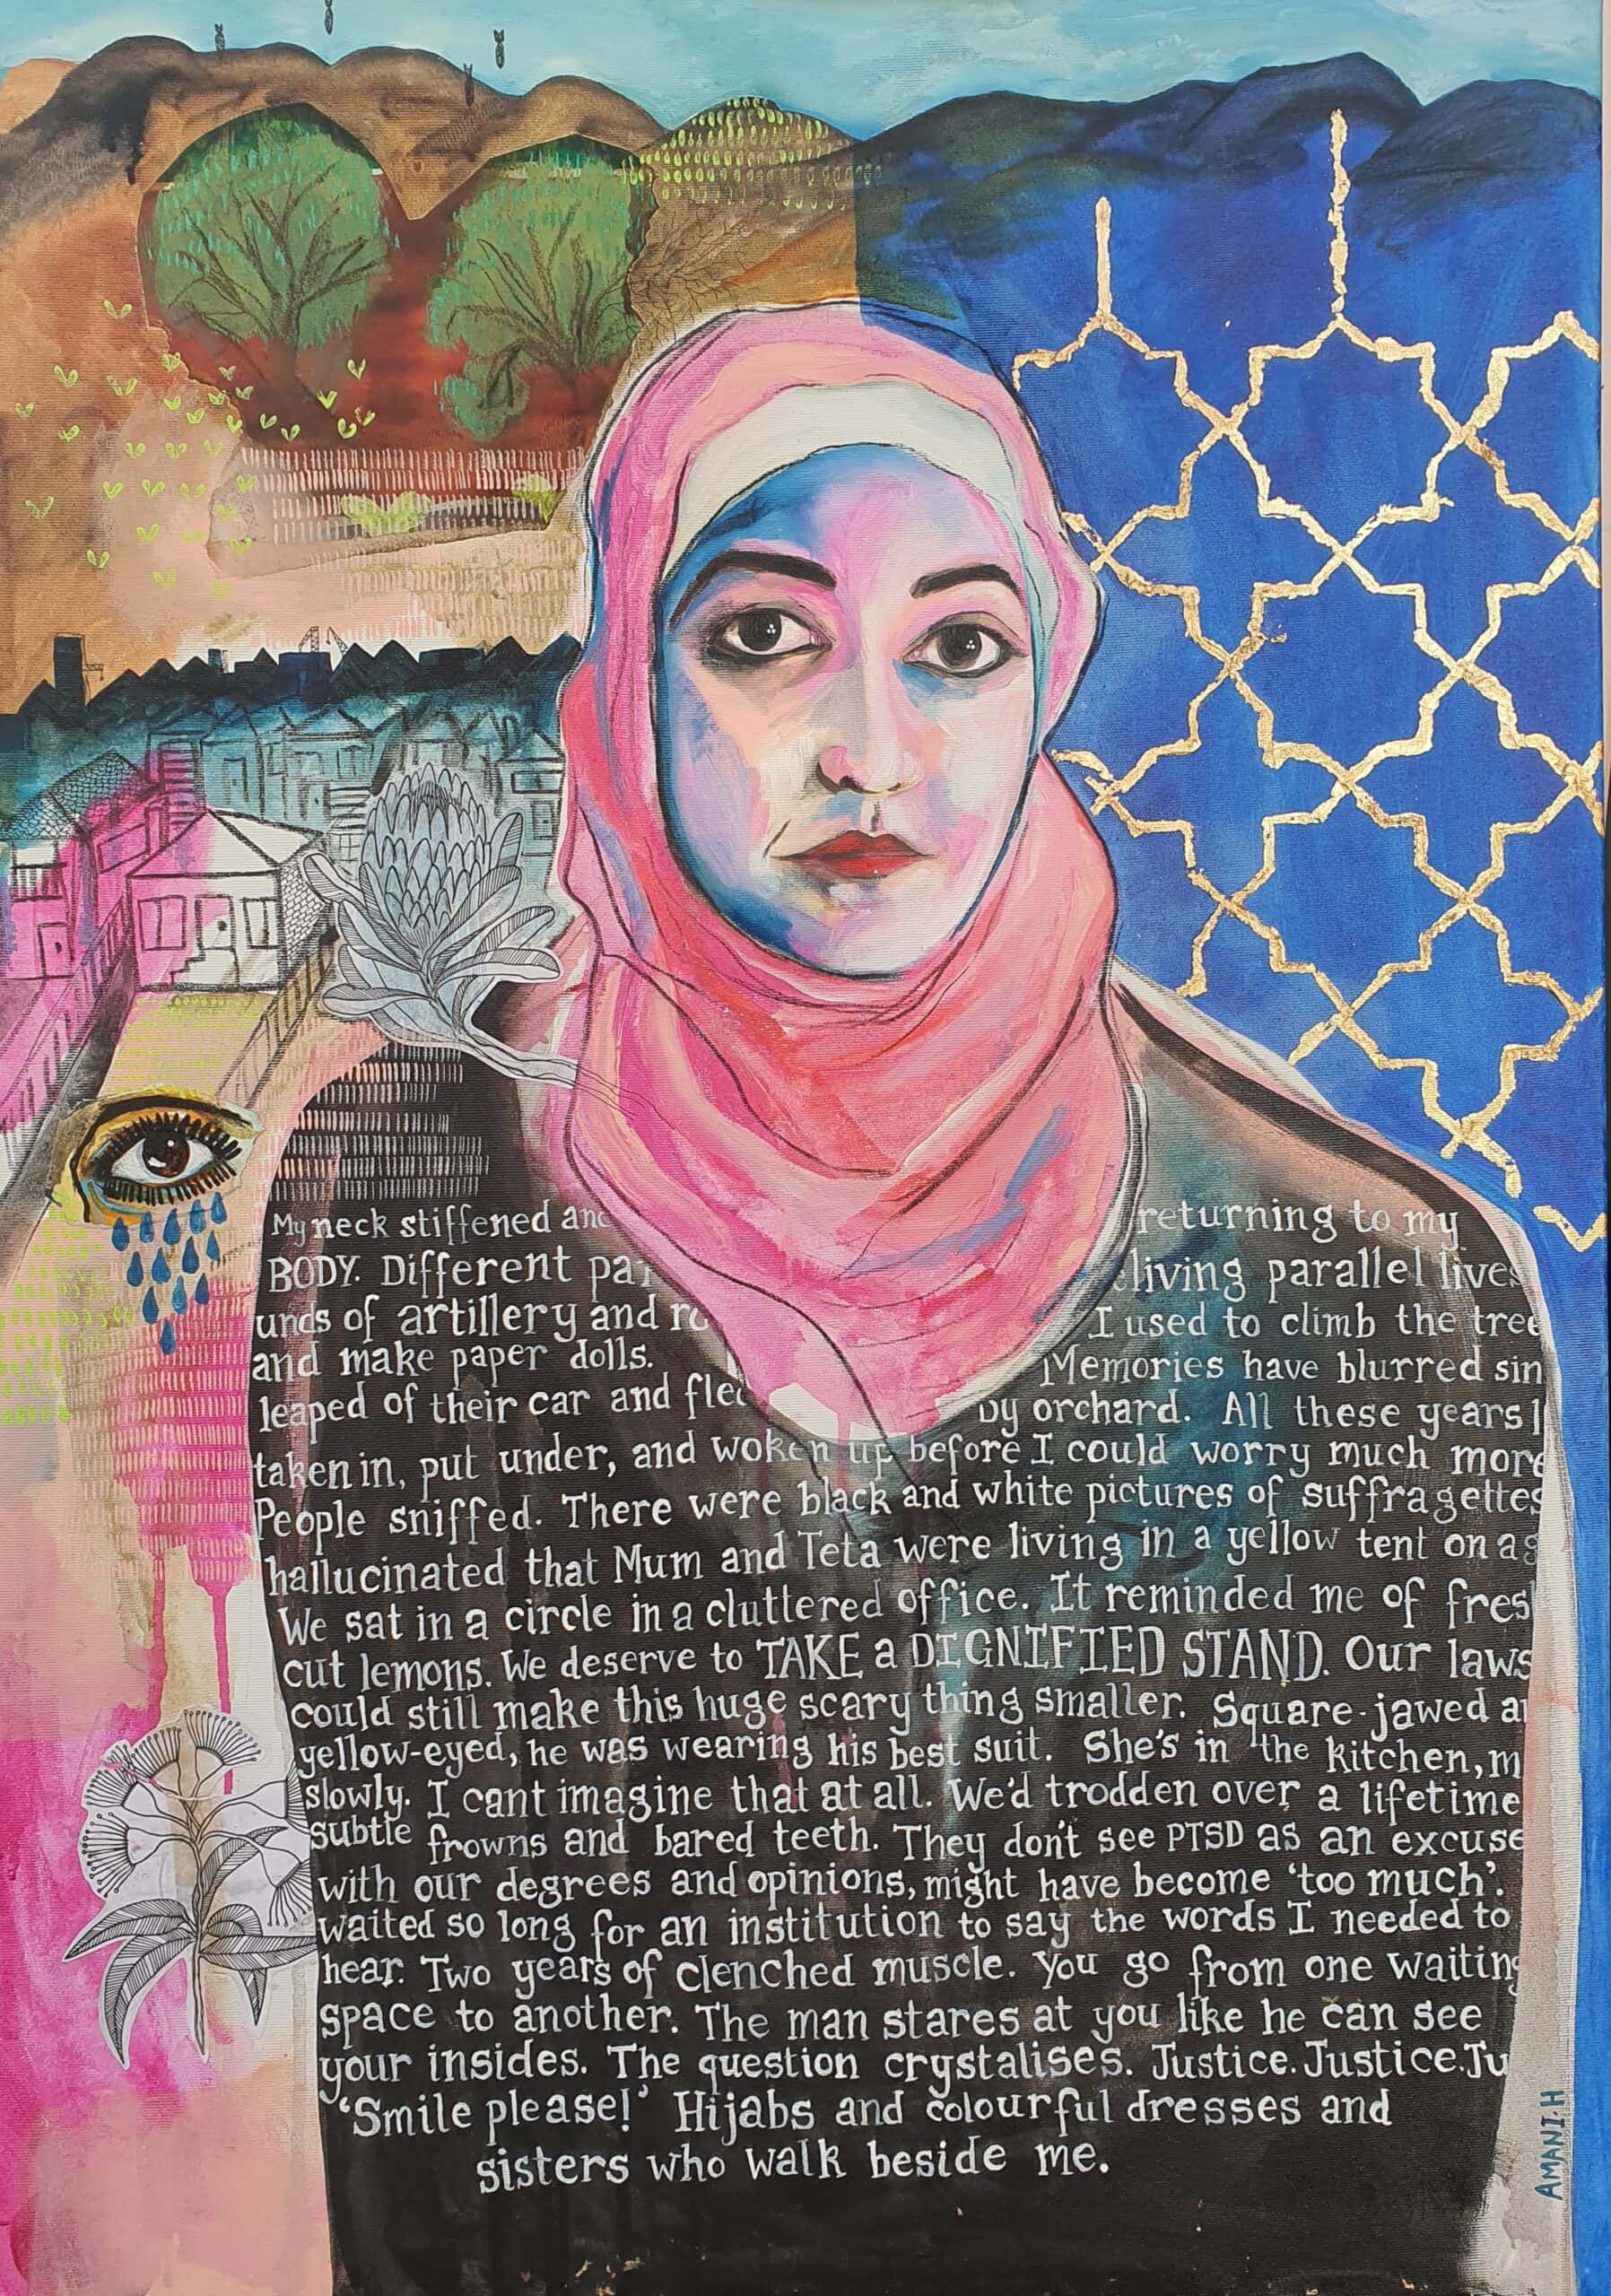 My neck stiffened and returning to my
BODY. Different living parallel lives
of artillery and I used to climb the tree
and make paper dolls. Memories have blurred sin
leaped of their car and fled by orchard. All these years I
taken in, put under, and woken up before I could worry much more
People sniffed. There were black and white pictures of suffragettes
hallucinated that Mum and Teta were living in a yellow tent on a
We sat in a circle in a cluttered office. It reminded me of fres
cut lemons. We deserve to TAKE a DIGNIFIED STAND. Our laws
could still make this huge scary thing smaller. Square-jawed a
yellow-eyed, he was wearing his best suit. She's in the kitchen, m
slowly. I cant imagine that at all. We'd trodden over a lifetime
subtle frowns and bared teeth. They don't see PTSD as an excuse
with our degrees and opinions, might have become 'too much'.
waited so long for an institution to say the words I needed to
hear. Two years of clenched muscle. You go from one waiting
space to another. The man stares at you like he can see
your insides. The question crystalises. Justice. Justice. Ju
'Smile please!' Hijabs and colourful dresses and
sisters who walk beside me.
AMANI.H